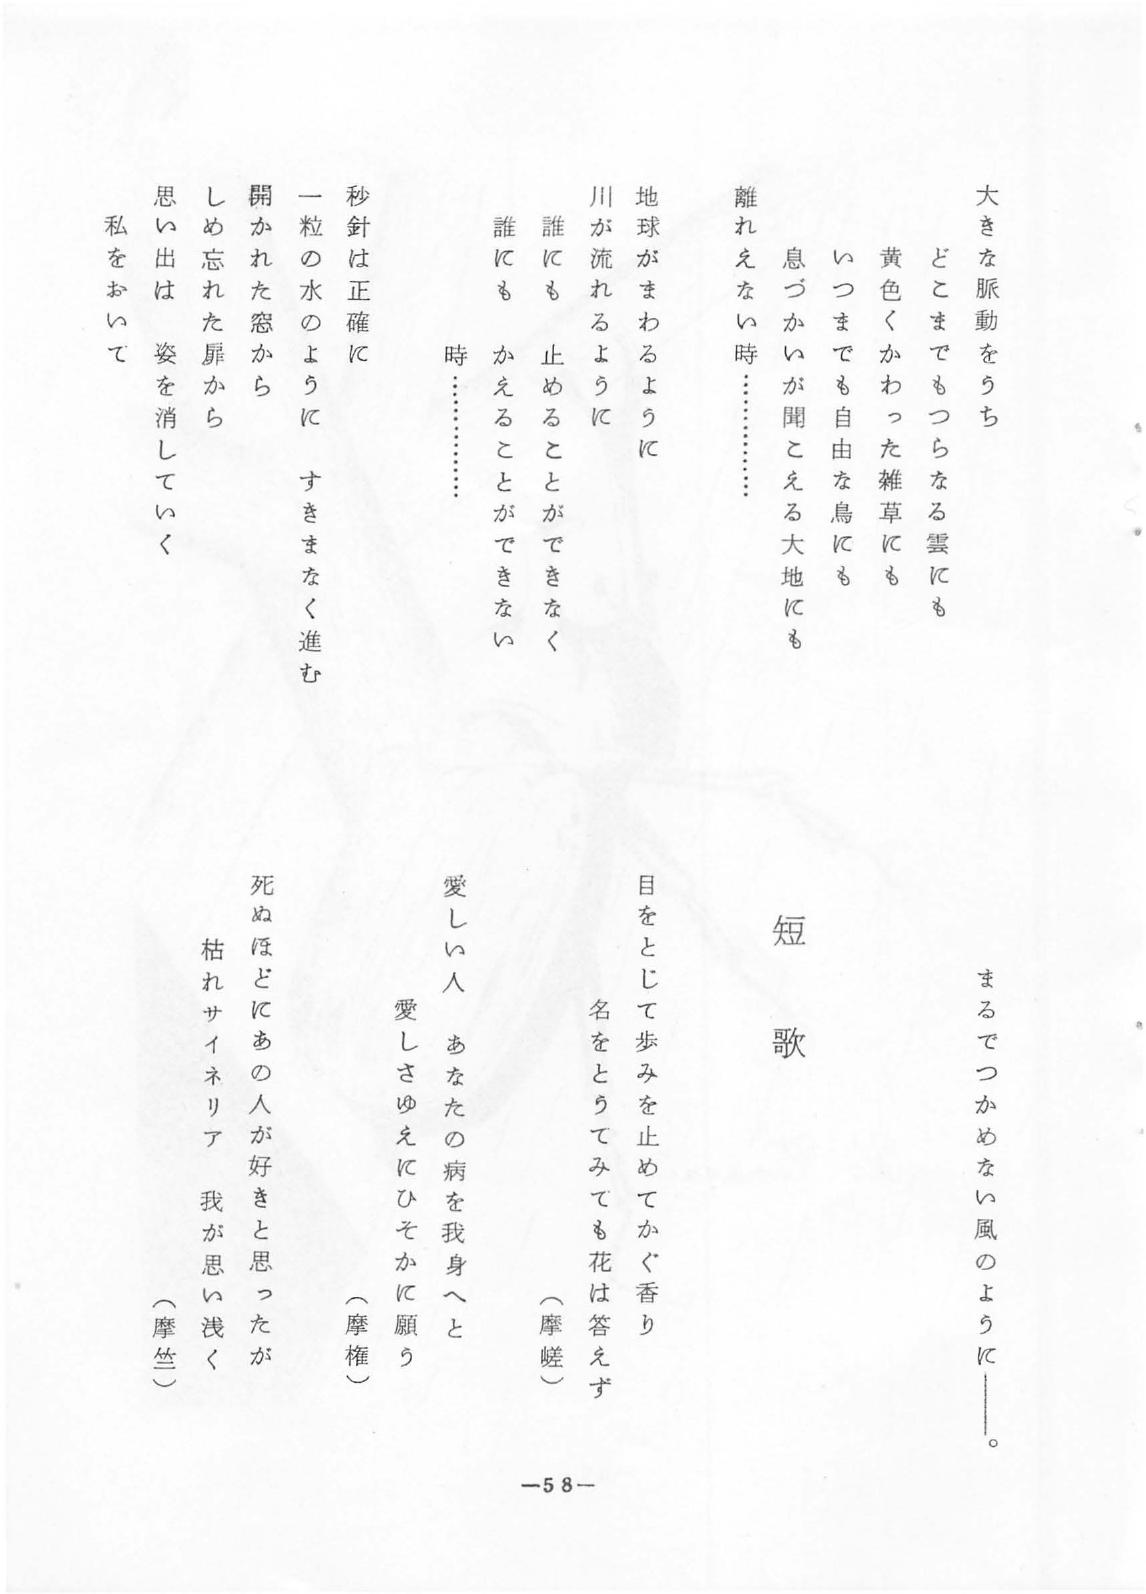 大きな脈動をうち
どこまでもつらなる雲にも
黄色くかわった雑草にも
いつまでも自由な鳥にも
息づかいが聞こえる大地にも
離れえない時…………
地球がまわるように
川が流れるように
誰にも　止めることができなく
誰にも　かえることができない
時…………
秒針は正確に
一粒の水のように　すきまなく進む
開かれた窓から
しめ忘れた扉から
思い出は　姿を消していく
私をおいて
まるでつかめない風のように――。
短歌
目をとじて歩みを止めてかぐ香り
名をとうてみても花は答えず
（摩嵯）
愛しい人　あなたの病を我身へと
愛しさゆえにひそかに願う
（摩権）
死ぬほどにあの人が好きと思ったが
枯れサイネリア　我が思い浅く
（摩竺）
—58—